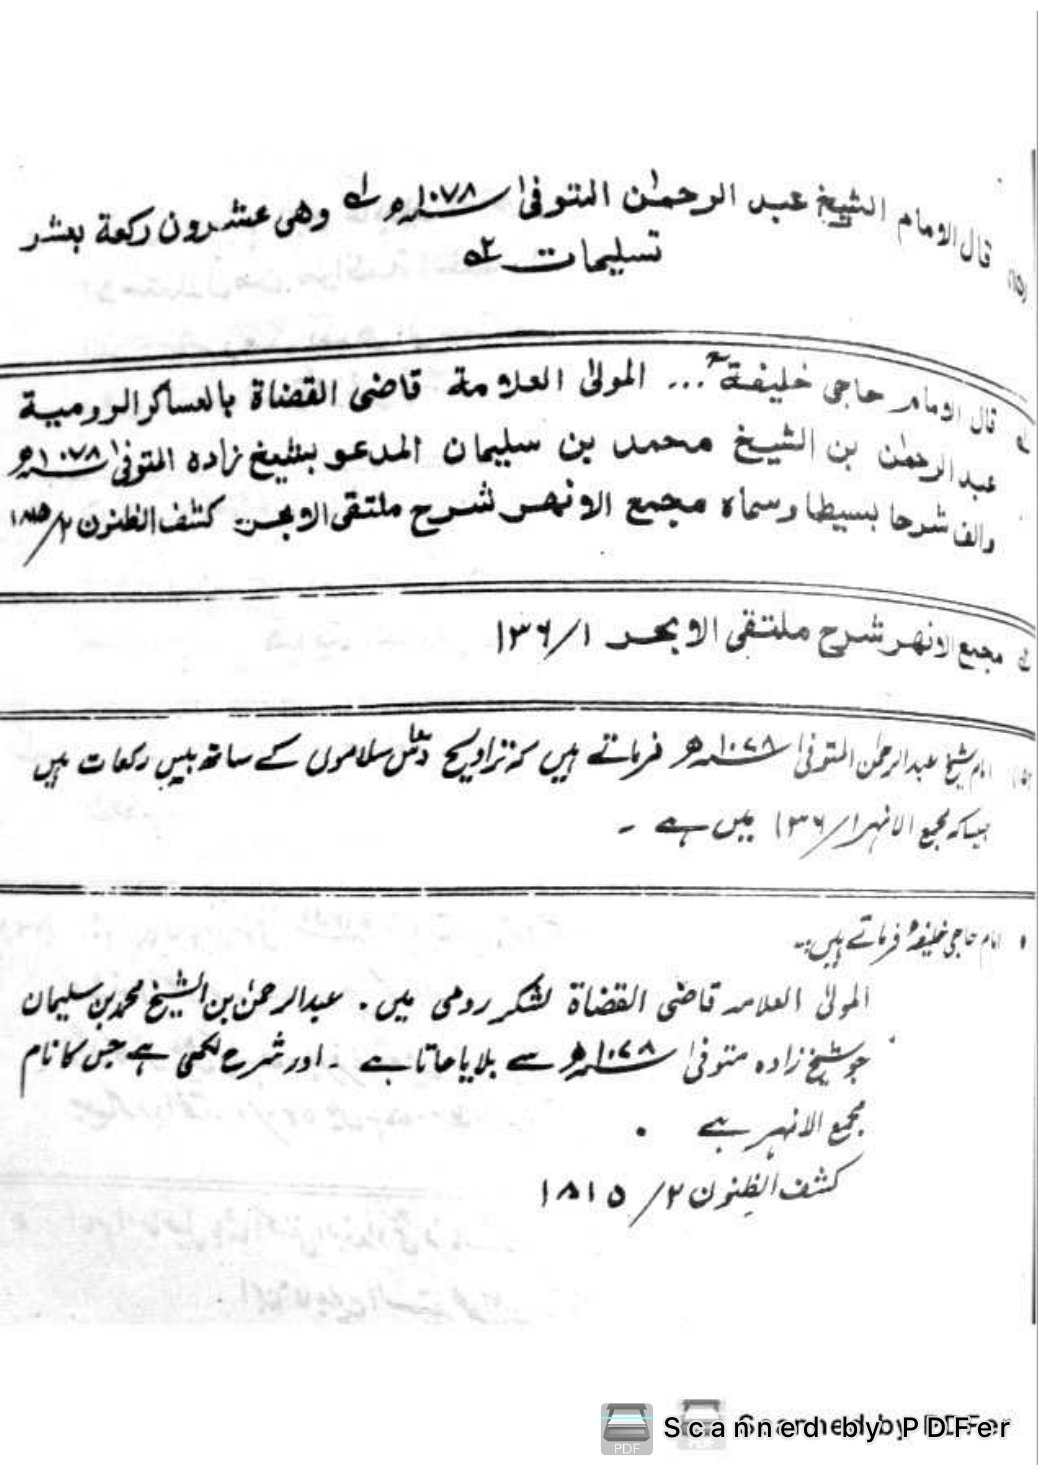 (١٥) قال الامام الشيخ عبد الرحمٰن المتوفىٰ ١٠٧٨ھ لے وهى عشرون ركعة بعشر
تسليمات ٢ے
لے قال الامام حاجى خليفة ... المولىٰ العلامة قاضى القضاة بالعساكر الرومية
عبد الرحمٰن بن الشيخ محمد بن سليمان المدعو بشيخ زاده المتوفىٰ ١٠٧٨ھ
والف شرحا بسيطا وسماه مجمع الانهر شرح ملتقى الابحر كشف الظنون ٢/١٨١٥
مجمع الانهر شرح ملتقى الابحر ١/١٣٦
امام شیخ عبدالرحمٰن المتوفیٰ ١٠٧٨ھ فرماتے ہیں کہ تراویح دس سلاموں کے ساتھ بیس رکعات ہیں
جیساکہ مجمع الانہر ١/١٣٦ میں ہے ۔
١ امام حاجی خلیفہ فرماتے ہیں:۔
المولیٰ العلامہ قاضی القضاة لشکر رومی میں . عبدالرحمٰن بن الشیخ محمد بن سلیمان
جو شیخ زادہ متوفیٰ ١٠٧٨ھ سے بلایا جاتا ہے ۔ اور شرح لکھی ہے جس کا نام
مجمع الانہر ہے .
کشف الظنون ٢/١٨١٥
Scanned by PDFer